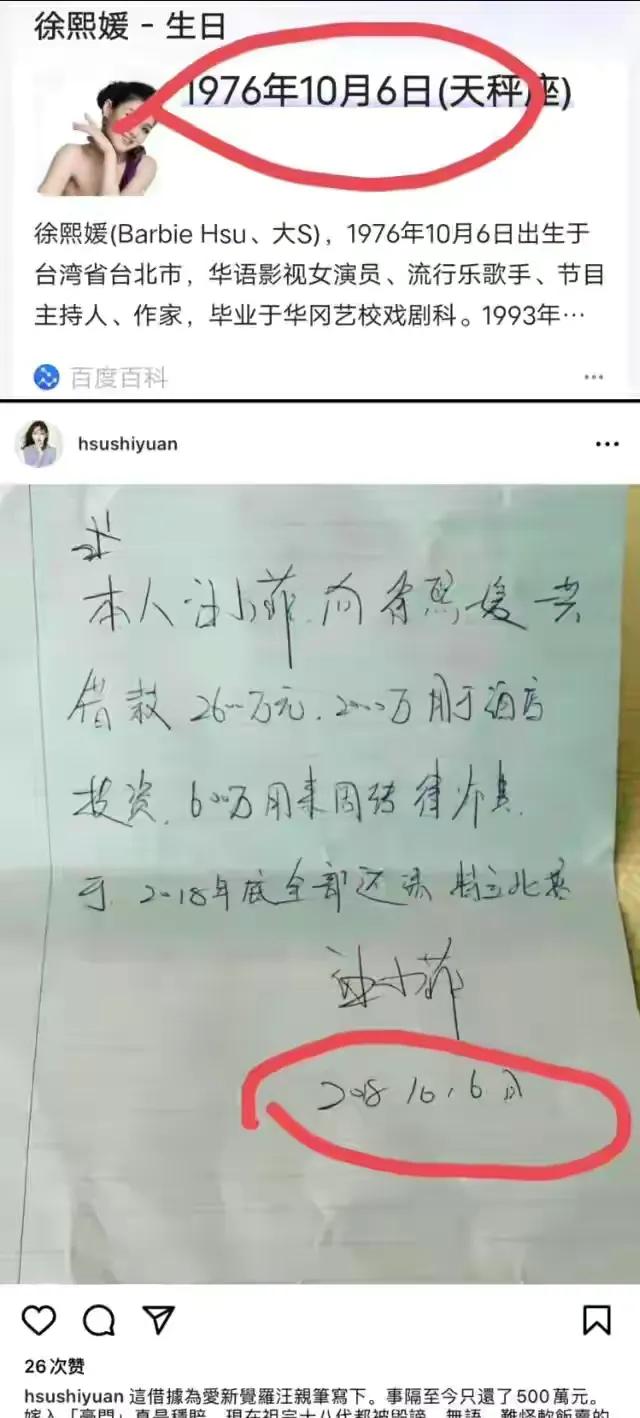 徐熙媛 - 生日
1976年10月6日(天秤座)
徐熙媛(Barbie Hsu、大S)，1976年10月6日出生于
台湾省台北市，华语影视女演员、流行乐歌手、节目
主持人、作家，毕业于华冈艺校戏剧科。1993年…
百度百科
hsushiyuan
本人汪小菲向徐熙媛共
借款 2600万元. 2000万用于酒店
投资. 600万用来周转律师费.
于. 2018年底全部还清 特立此据
汪小菲
2018 10. 6日
26次赞
hsushiyuan 這借據為愛新覺羅汪親筆寫下。事隔至今只還了500萬元。
嫁入「豪門」真是穩賠，現在祖宗十八代都被毀謗，無語，難怪軟飯賣的